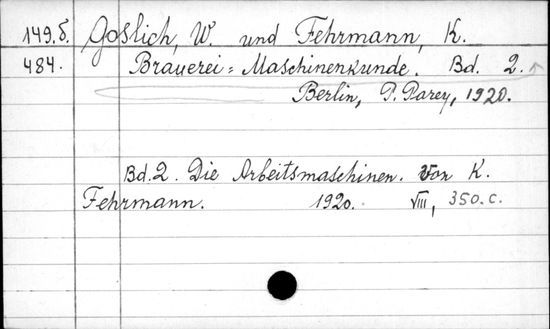 149.б. Goslich, W. und Fehrmann, K.
484. Brauerei=Maschinenkunde. Bd. 2.
Berlin, P. Parey, 1920.
Bd. 2. Die Arbeitsmaschinen. Von K.
Fehrmann. 1920. VIII, 350.c.